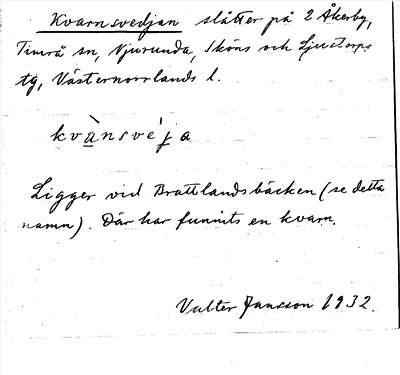 Kvarnsvedjan slåtter på 2 Åkerby,
Timrå sn, Njurunda, Sköns och Ljustorps
tg, Västernorrlands l.
kvànsvéja
Ligger vid Brattlandsbäcken (se detta
namn). Där har funnits en kvarn.
Valter Jansson 1932.